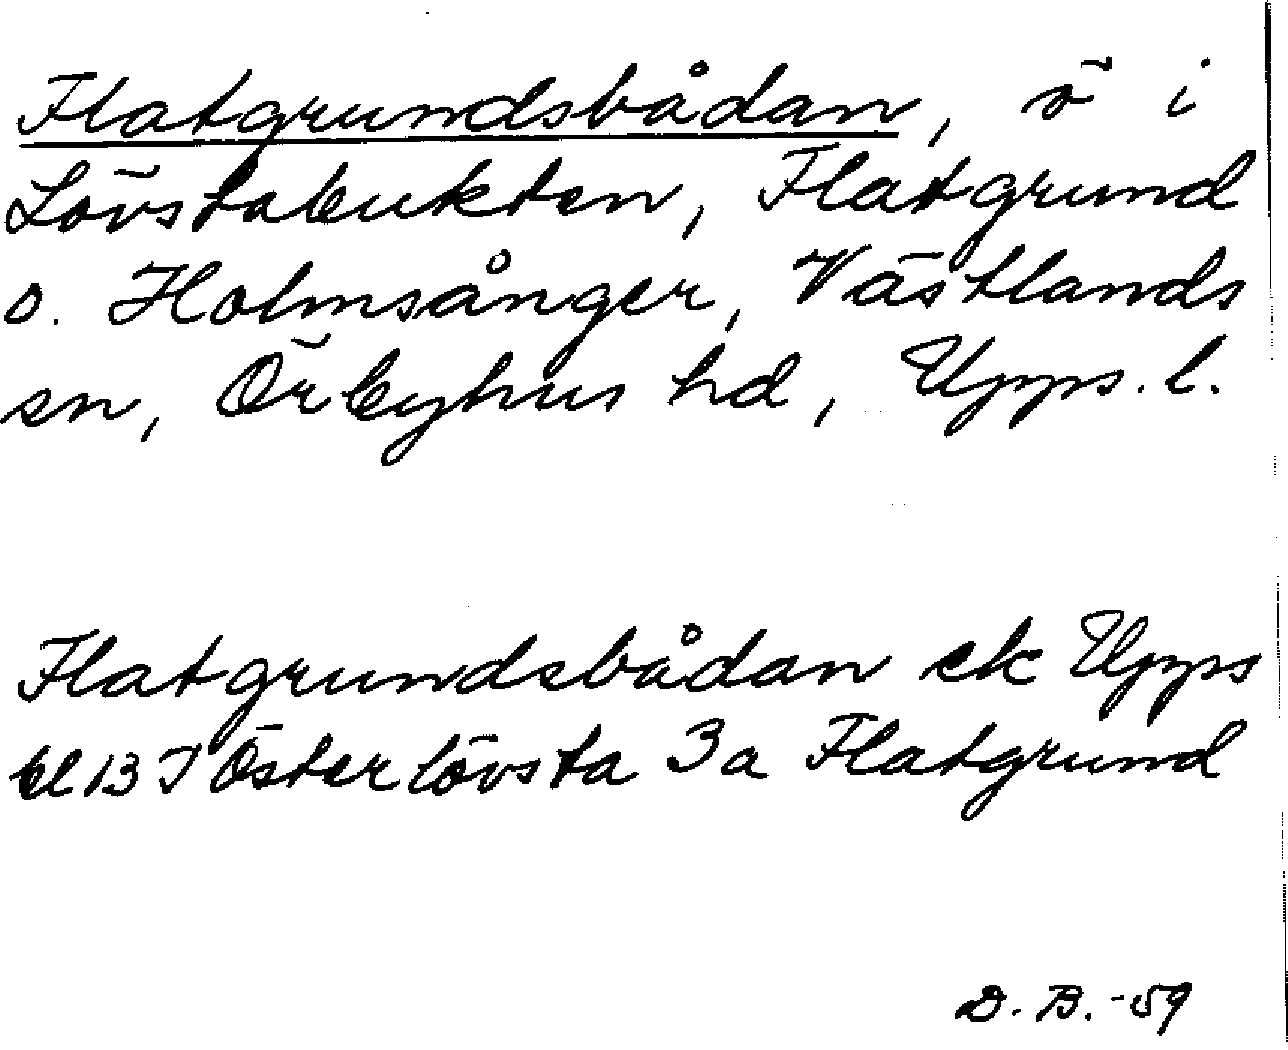 Flatgrundsbådan, ö i
Lövstabukten, Flatgrund
o. Holmsånger, Västlands
sn, Örbyhus hd, Upps. l.
Flatgrundsbådan ek Upps
bl 13 I Österlövsta 3a Flatgrund
D. B. -59